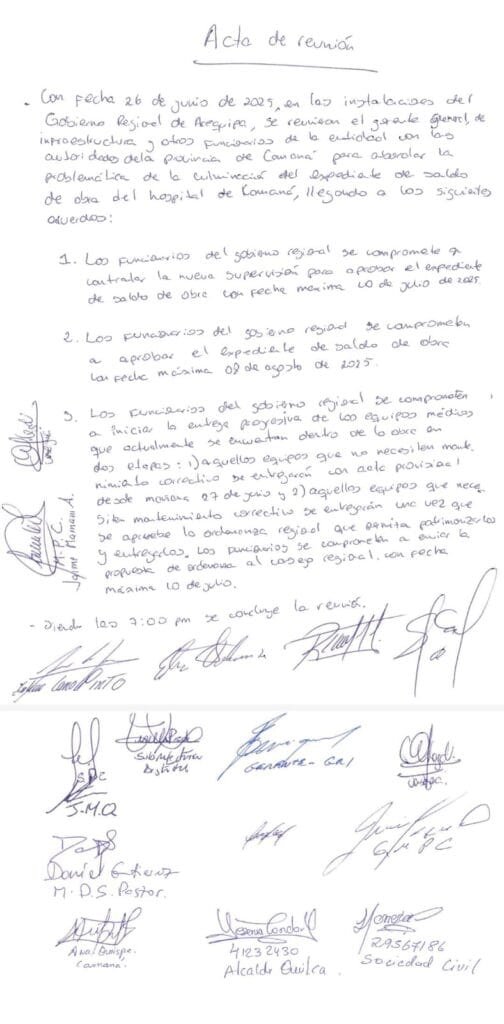 Acta de reunión
- Con fecha 26 de junio de 2025, en las instalaciones del
Gobierno Regional de Arequipa, se reunieron el gerente General, de
infraestructura y otros funcionarios de la entidad con las
autoridades de la provincia de Camaná para abordar la
problemática de la culminación del expediente de saldo
de obra del hospital de Camaná, llegando a los siguientes
acuerdos:
1. Los funcionarios del gobierno regional se compromete a
contratar la nueva supervisión para aprobar el expediente
de saldo de obra con fecha máxima 10 de julio de 2025.
2. Los funcionarios del gobierno regional se comprometen
a aprobar el expediente de saldo de obra
con fecha máxima 08 de agosto de 2025.
3. Los funcionarios del gobierno regional se comprometen
a iniciar la entrega progresiva de los equipos médicos
que actualmente se encuentran dentro de la obra en
dos etapas: 1) aquellos equipos que no necesiten mante
nimiento correctivo se entregarán con acta provisional
desde mañana 27 de junio y 2) aquellos equipos que nece
siten mantenimiento correctivo se entregarán una vez que
se apruebe la ordenanza regional que permita patrimonizarlos
y entregarlos. Los funcionarios se comprometen a enviar la
propuesta de ordenanza al consejo regional, con fecha
máxima 10 de julio.
- Siendo las 7:00 pm se concluye la reunión.
M.P.C.
Jaime Mamani A.
S.P.C
J.M.Q
Gerente - GRI
Daniel Gutierrez
M.D.S. Pastor.
G.M.P.C
Ana Quispe.
Camaná.
41232430
Alcalde Quilca.
29567186
Sociedad Civil